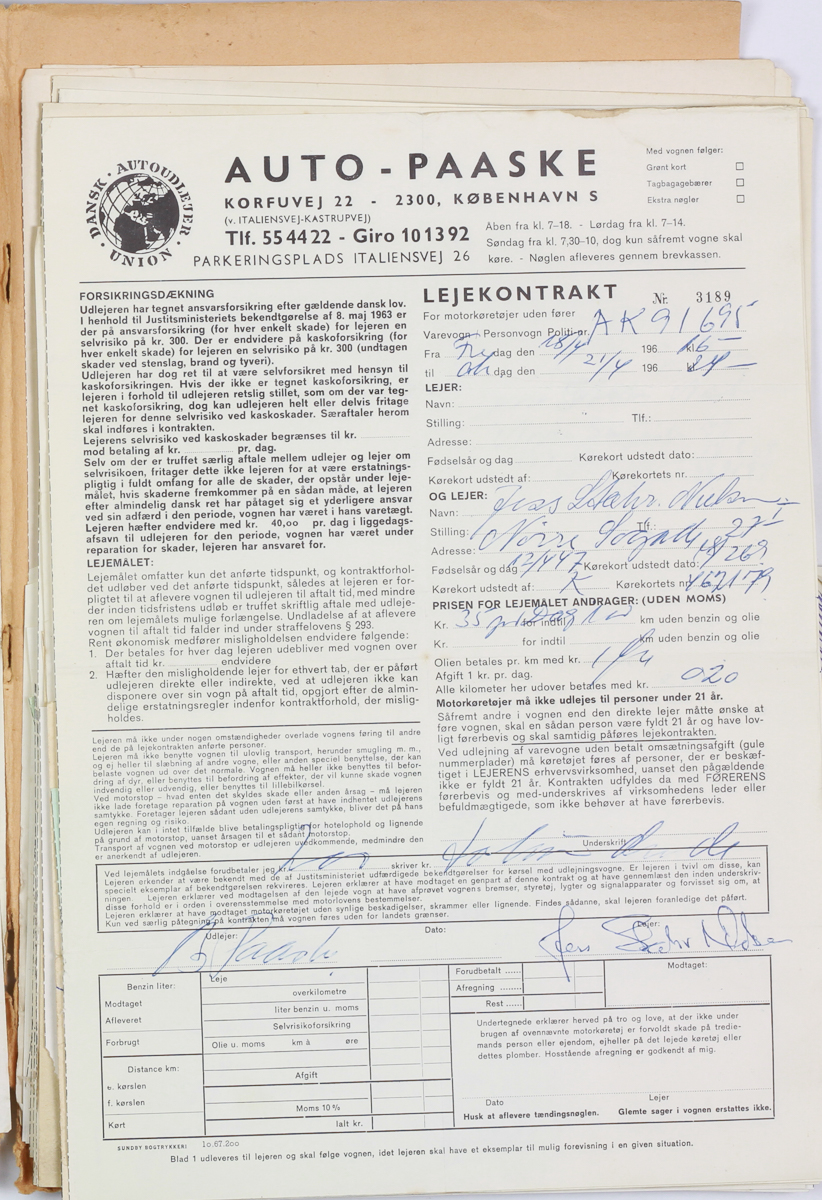 DANSK · AUTOUDLEJER · UNION ·
AUTO - PAASKE
KORFUVEJ 22 - 2300, KØBENHAVN S
(v. ITALIENSVEJ-KASTRUPVEJ)
Tlf. 55 44 22 - Giro 10 13 92
PARKERINGSPLADS ITALIENSVEJ 26
Med vognen følger:
Grønt kort
Tagbagagebærer
Ekstra nøgler
Åben fra kl. 7-18. - Lørdag fra kl. 7-14.
Søndag fra kl. 7,30-10, dog kun såfremt vogne skal
køre. - Nøglen afleveres gennem brevkassen.
FORSIKRINGSDÆKNING
Udlejeren har tegnet ansvarsforsikring efter gældende dansk lov.
I henhold til Justitsministeriets bekendtgørelse af 8. maj 1963 er
der på ansvarsforsikring (for hver enkelt skade) for lejeren en
selvrisiko på kr. 300. Der er endvidere på kaskoforsikring (for
hver enkelt skade) for lejeren en selvrisiko på kr. 300 (undtagen
skader ved stenslag, brand og tyveri).
Udlejeren har dog ret til at være selvforsikret med hensyn til
kaskoforsikringen. Hvis der ikke er tegnet kaskoforsikring, er
lejeren i forhold til udlejeren retslig stillet, som om der var teg-
net kaskoforsikring, dog kan udlejeren helt eller delvis fritage
lejeren for denne selvrisiko ved kaskoskader. Særaftaler herom
skal indføres i kontrakten.
Lejerens selvrisiko ved kaskoskader begrænses til kr.
mod betaling af kr. pr. dag.
Selv om der er truffet særlig aftale mellem udlejer og lejer om
selvrisikoen, fritager dette ikke lejeren for at være erstatnings-
pligtig i fuldt omfang for alle de skader, der opstår under leje-
målet, hvis skaderne fremkommer på en sådan måde, at lejeren
efter almindelig dansk ret har påtaget sig et yderligere ansvar
ved sin adfærd i den periode, vognen har været i hans varetægt.
Lejeren hæfter endvidere med kr. 40,oo pr. dag i liggedags-
afsavn til udlejeren for den periode, vognen har været under
reparation for skader, lejeren har ansvaret for.
LEJEMÅLET:
Lejemålet omfatter kun det anførte tidspunkt, og kontraktforhol-
det udløber ved det anførte tidspunkt, således at lejeren er for-
pligtet til at aflevere vognen til udlejeren til aftalt tid, med min-
dre der inden tidsfristens udløb er truffet skriftlig aftale med udleje-
ren om lejemålets mulige forlængelse. Undladelse af at aflevere
vognen til aftalt tid falder ind under straffelovens § 293.
Rent økonomisk medfører misligholdelsen endvidere følgende:
1. Der betales for hver dag lejeren udebliver med vognen over
aftalt tid kr. endvidere
2. Hæfter den misligholdende lejer for ethvert tab, der er påført
udlejeren direkte eller indirekte, ved at udlejeren ikke kan
disponere over sin vogn på aftalt tid, opgjort efter de almin-
delige erstatningsregler indenfor kontraktforhold, der mislig-
holdes.
Lejeren må ikke under nogen omstændigheder overlade vognens føring til andre
end de på lejekontrakten anførte personer.
Lejeren må ikke benytte vognen til ulovlig transport, herunder smugling m. m.,
og ej heller til slæbning af andre vogne, eller anden speciel benyttelse, der kan
belaste vognen ud over det normale. Vognen må heller ikke benyttes til befor-
dring af dyr, eller benyttes til befordring af effekter, der vil kunne skade vognen
indvendig eller udvendig, eller benyttes til lillebilkørsel.
Ved motorstop - hvad enten det skyldes skade eller anden årsag - må lejeren
ikke lade foretage reparation på vognen uden først at have indhentet udlejerens
samtykke. Foretager lejeren sådant uden udlejerens samtykke, bliver det på hans
egen regning og risiko.
Udlejeren kan i intet tilfælde blive betalingspligtig for hotelophold og lignende
på grund af motorstop, uanset årsagen til et sådant motorstop.
Transport af vognen ved motorstop er udlejeren uvedkommende, medmindre den
er anerkendt af udlejeren.
LEJEKONTRAKT Nr. 3189
For motorkøretøjer uden fører
Varevogn - Personvogn Politi-nr. AK 91 695
Fra Fre dag den 18/4 196 kl. 16 -
til dag den 21/4 196 kl.
LEJER:
Navn:
Stilling: Tlf.:
Adresse:
Fødselsår og dag Kørekort udstedt dato:
Kørekort udstedt af: Kørekortets nr.
OG LEJER:
Navn: Jess Stæhr Nielsen
Stilling: Tlf.:
Adresse: Nørre Søgade 27
Fødselsår og dag 12/4 47 Kørekort udstedt dato:
Kørekort udstedt af: K Kørekortets nr. 167179
PRISEN FOR LEJEMÅLET ANDRAGER: (UDEN MOMS)
Kr. 35 pr Dag for indtil km uden benzin og olie
Kr. for indtil km uden benzin og olie
Olien betales pr. km med kr. 1 Øre
Afgift 1 kr. pr. dag.
Alle kilometer her udover betales med kr. 020
Motorkøretøjer må ikke udlejes til personer under 21 år.
Såfremt andre i vognen end den direkte lejer måtte ønske at
føre vognen, skal en sådan person være fyldt 21 år og have lov-
ligt førerbevis og skal samtidig påføres lejekontrakten.
Ved udlejning af varevogne uden betalt omsætningsafgift (gule
nummerplader) må køretøjet føres af personer, der er beskæf-
tiget i LEJERENS erhvervsvirksomhed, uanset den pågældende
ikke er fyldt 21 år. Kontrakten udfyldes da med FØRERENS
førerbevis og med-underskrives af virksomhedens leder eller
befuldmægtigede, som ikke behøver at have førerbevis.
Underskrift
Ved lejemålets indgåelse forudbetaler jeg kr. skriver kr.
Lejeren erkender at være bekendt med de af Justitsministeriet udfærdigede bekendtgørelser for kørsel med udlejningsvogne. Er lejeren i tvivl om disse, kan
specielt eksemplar af bekendtgørelsen rekvireres. Lejeren erklærer at have modtaget en genpart af denne kontrakt og at have gennemlæst den inden underskriv-
ningen. Lejeren erklærer ved modtagelsen af den lejede vogn at have afprøvet vognens bremser, styretøj, lygter og signalapparater og forvisset sig om, at
disse forhold er i orden i overensstemmelse med motorlovens bestemmelser.
Lejeren erklærer at have modtaget motorkøretøjet uden synlige beskadigelser, skrammer eller lignende. Findes sådanne, skal lejeren foranledige det påført.
Kun ved særlig påtegning på kontrakten må vognen føres uden for landets grænser.
Udlejer: Dato: Lejer:
B Paaske Jess Stæhr Nielsen
Benzin liter:
Modtaget
Afleveret
Forbrugt
Distance km:
e. kørslen
f. kørslen
Kørt
Leje
overkilometre
liter benzin u. moms
Selvrisikoforsikring
Olie u. moms km à øre
Afgift
Moms 10 %
Ialt kr.
Forudbetalt ......
Afregning ......
Rest ......
Modtaget:
Undertegnede erklærer herved på tro og love, at der ikke under
brugen af ovennævnte motorkøretøj er forvoldt skade på tredie-
mands person eller ejendom, ejheller på det lejede køretøj eller
dettes plomber. Hosstående afregning er godkendt af mig.
Dato Lejer
Husk at aflevere tændingsnøglen. Glemte sager i vognen erstattes ikke.
SUNDBY BOGTRYKKERI 10.67.200
Blad 1 udleveres til lejeren og skal følge vognen, idet lejeren skal have et eksemplar til mulig forevisning i en given situation.